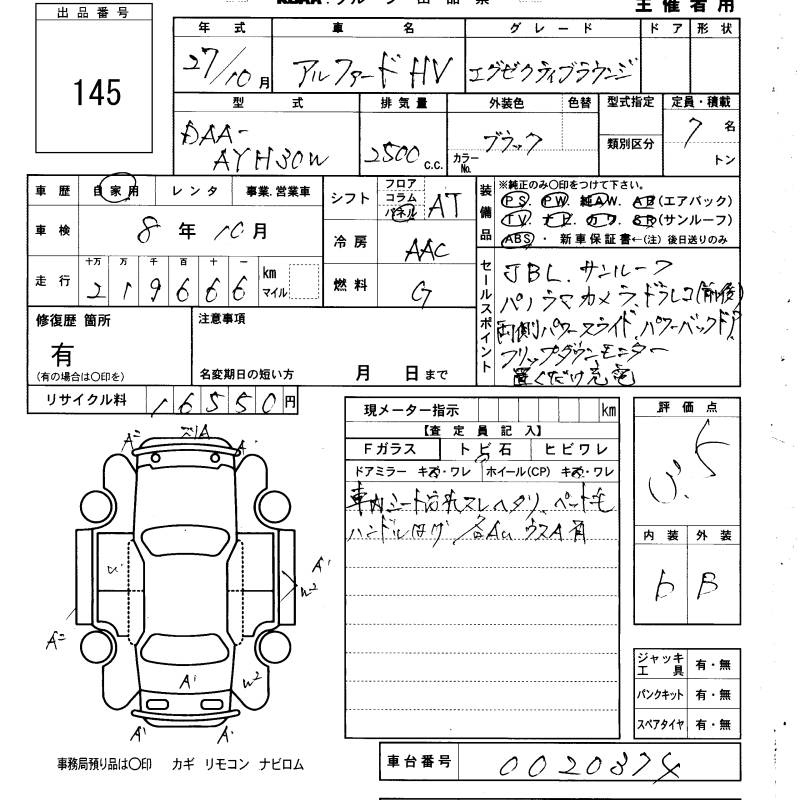 出品番号
主催者用
145
年式 車名 グレード ドア 形状
27/10月 アルファードHV エグゼクティブラウンジ
型式 排気量 外装色 色替 型式指定 定員・積載
DAA-
AYH30W 2500 c.c. ブラック カラーNo. 類別区分 7名
トン
車歴 自家用 レンタ 事業.営業車
車検 8年10月
走行 十万 万 千 百 十 一 km マイル
219666
シフト フロア コラム パネル AT
冷房 AAC
燃料 G
装備品 ※純正のみ〇印をつけて下さい。
PS. PW. 純AW. AB(エアバック)
TV. ナビ. カワ. SR(サンルーフ)
ABS・ 新車保証書←(注) 後日送りのみ
セールスポイント
JBL. サンルーフ
パノラマカメラ、ドラレコ(前後)
両側パワースライド、パワーバックドア
フリップダウンモニター
置くだけ充電
修復歴 箇所
有
(有の場合は〇印を)
注意事項
名変期日の短い方 月 日まで
リサイクル料 16550円
現メーター指示 km
【査定員記入】
Fガラス トビ石 ヒビワレ
ドアミラー キズ・ワレ ホイール(CP) キズ・ワレ
車内シート
ハンドル
評価点
内装 外装
b B
A² A A¹
A¹
W²
A²
A¹ W²
A¹ A¹
ジャッキ 工具 有・無
パンクキット 有・無
スペアタイヤ 有・無
事務局預り品は〇印 カギ リモコン ナビロム
車台番号 0020374